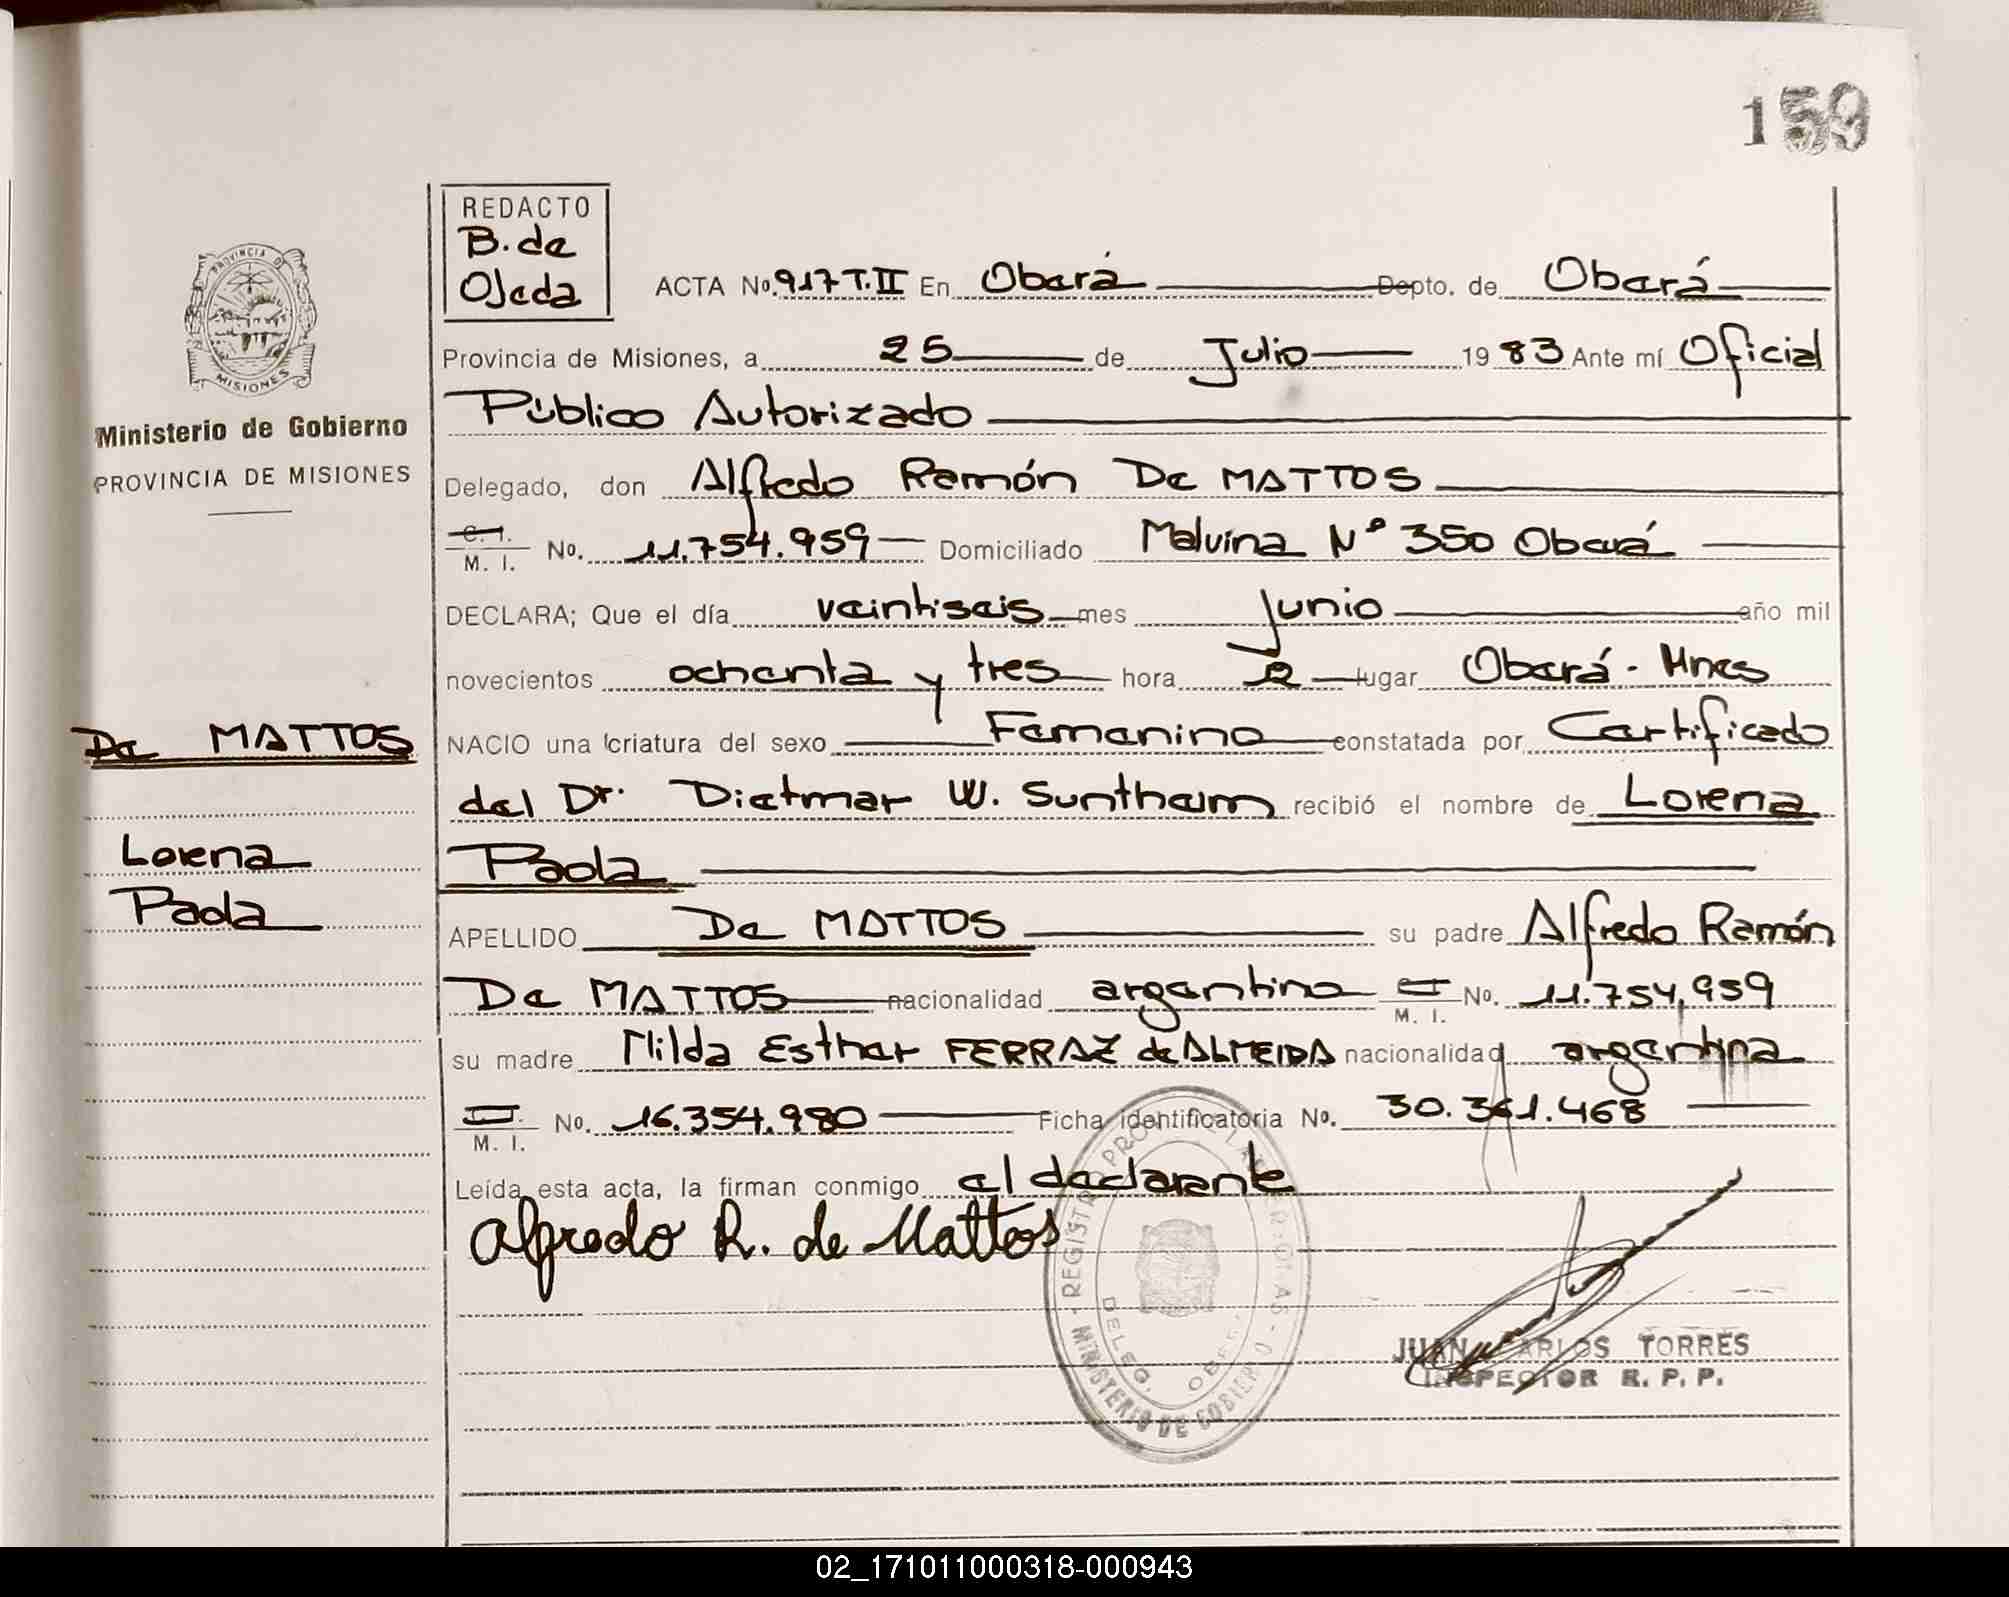 159
REDACTO
B. de
Ojeda
PROVINCIA DE
MISIONES
Ministerio de Gobierno
PROVINCIA DE MISIONES
ACTA No. 917 T.II En Oberá Depto. de Oberá
Provincia de Misiones, a 25 de Julio 19 83 Ante mí Oficial
Público Autorizado
Delegado, don Alfredo Ramón De MATTOS
C. I.
M. I. No. 11.754.959 Domiciliado Malvina Nº 350 Oberá
DECLARA; Que el día veintiseis mes Junio año mil
novecientos ochenta y tres hora 2 lugar Oberá - Mnes
De MATTOS
NACIO una criatura del sexo Femenino constatada por Certificado
del Dr. Dietmar W. Suntheim recibió el nombre de Lorena
Lorena
Paola
Paola
APELLIDO De MATTOS su padre Alfredo Ramón
De MATTOS nacionalidad argentino M. I. No. 11.754,959
su madre Nilda Esther FERRAZ de ALMEIDA nacionalidad argentina
M. I. No. 16.354.980 Ficha identificatoria No. 30.361.468
Leída esta acta, la firman conmigo el declarante
Alfredo R. de Mattos
REGISTRO PROV. DE LAS PERSONAS
MINISTERIO DE GOBIERNO
DELEG. OBERA
JUAN CARLOS TORRES
INSPECTOR R. P. P.
02_171011000318-000943